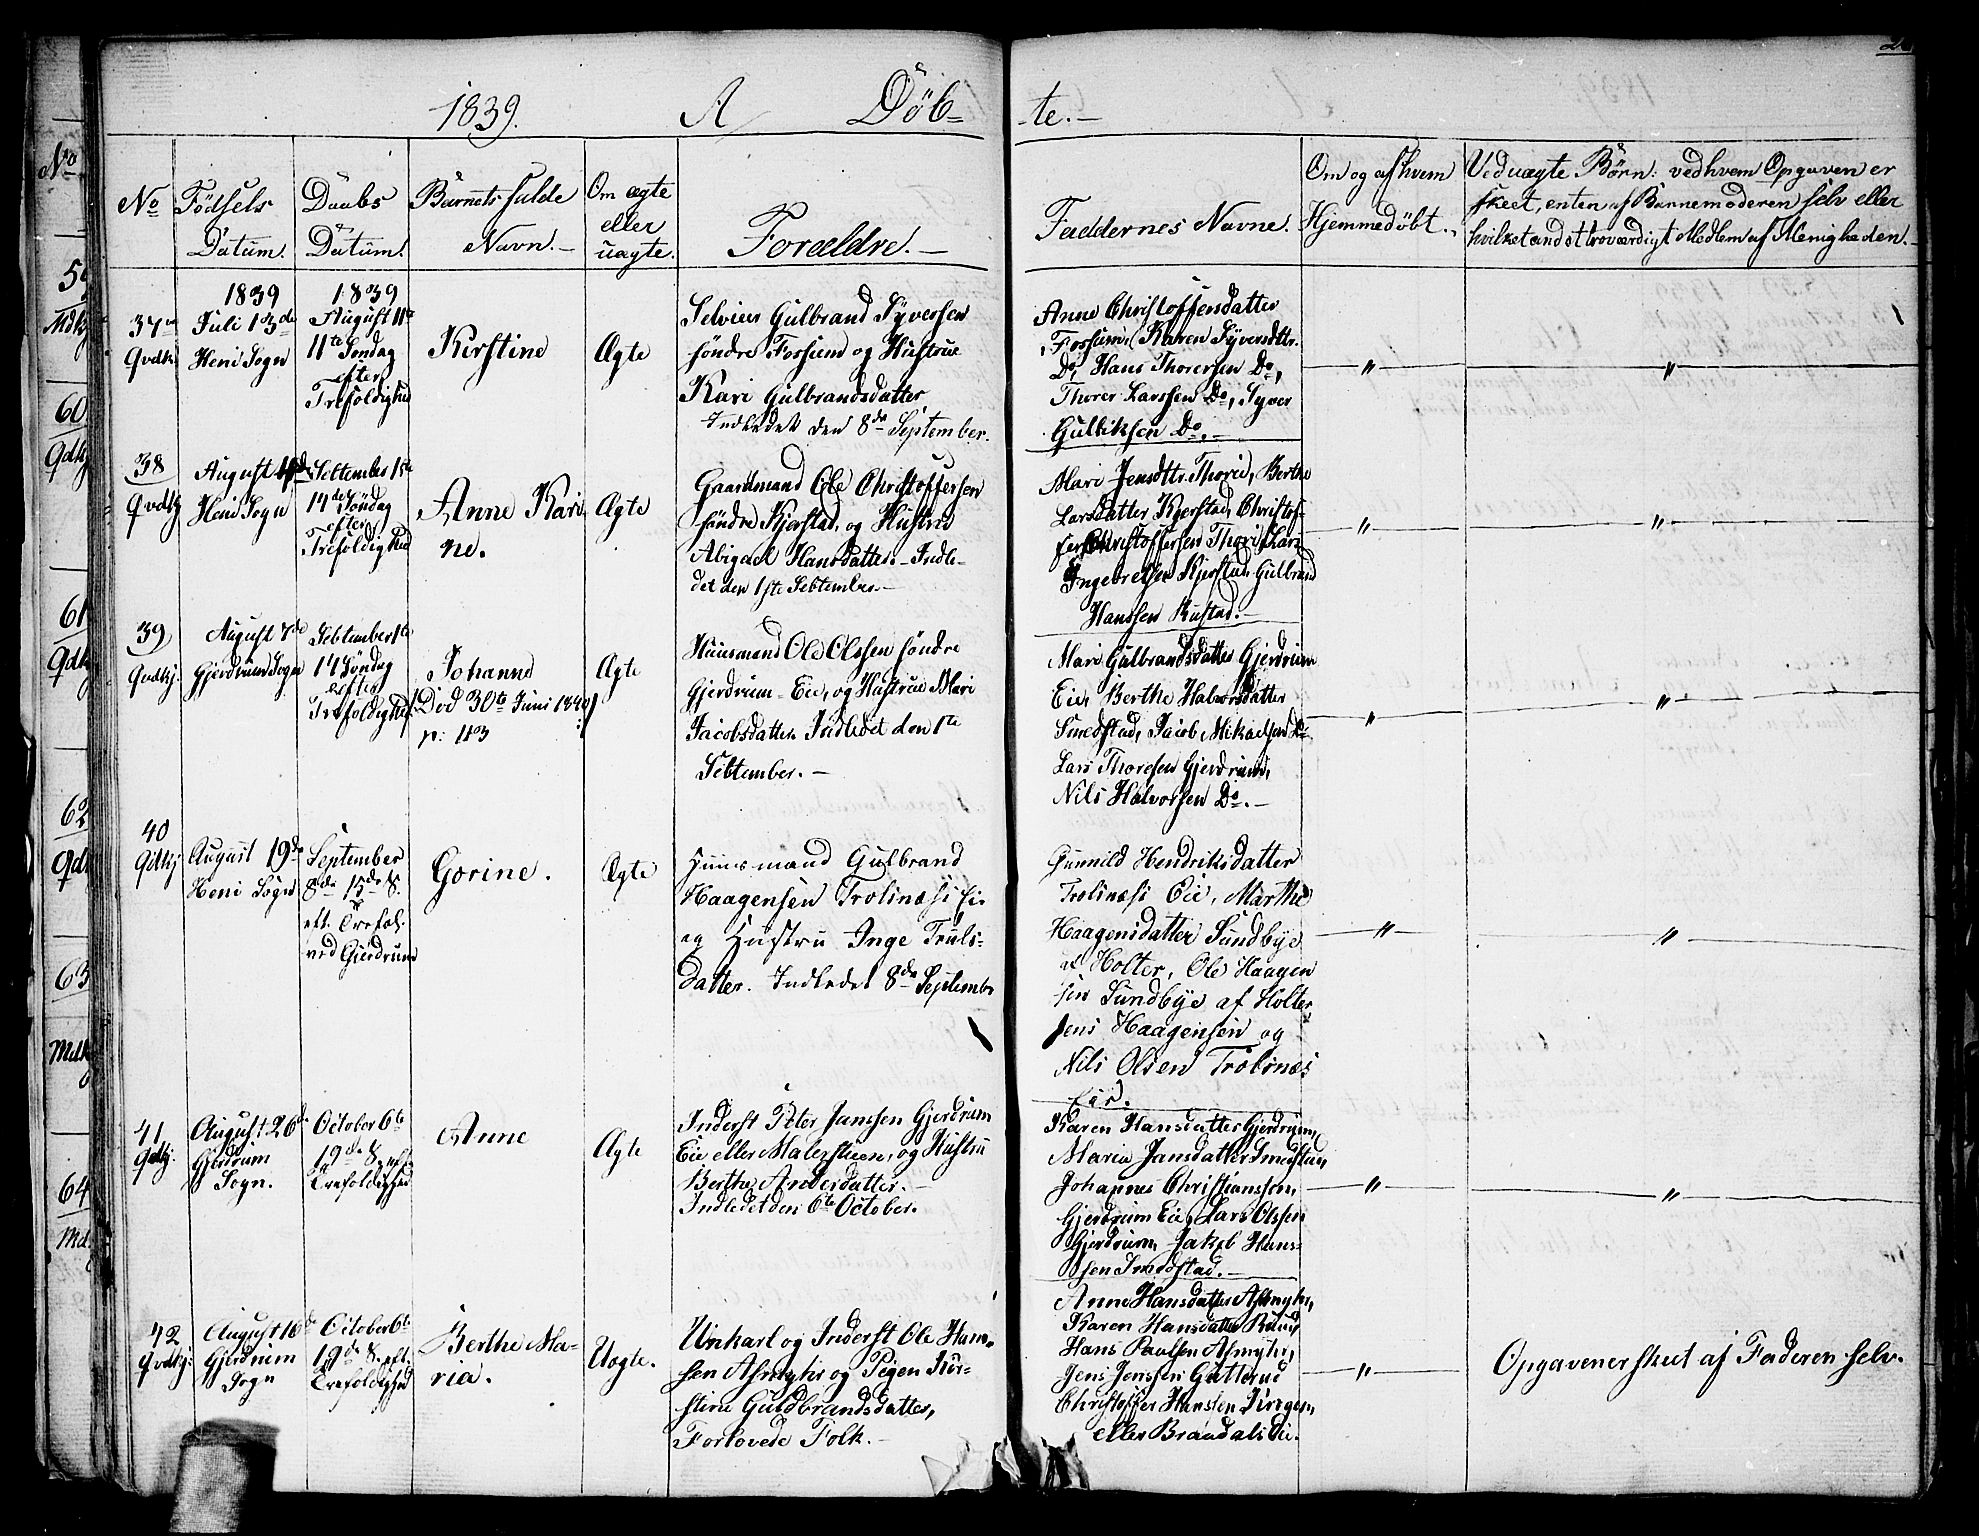 1839. A Döb= -te.-
No
Födsels Datum.
Daabs Datum.
Barnets fulde Navn.-
Om ægte eller uægte.
Forældre.-
Faddernes Navne.
Om og af hvem Hjemmedöbt.
Ved uægte Börn: ved hvem Opgaven er
skeet, enten af Barnemoderen selv eller
hvilket andet troværdigt Medlem af Menigheden.
37
Qvdkj
1839
Juli 13de
Heni Sogn
1839
August 11te
11te Søndag
efter
Trefoldighed
Kirstine
Ægte
Selveier Gulbrand Syversen
söndre Fossum og Hustrue
Kari Gulbrandsdatter
Indledet den 8de September.
Anne Christoffersdatter
Fossum, Karen Syversdttr.
Do, Hans Thorersen Do,
Thorer Larssen Do, Syver
Gulliksen Do.-
"
"
38
Qvdkj
August
Heni Sogn
Sebtember 1ste
14de Söndag
efter
Trefoldighed
Anne Kari
ne.
Ægte
Gaardmand Ole Christoffersen
söndre Kjerstad, og Hustrue
Abigael Hansdatter.- Indle-
det den 1ste Sebtember.-
Mari Jensdttr. Thorie, Berthe
Larsdatter Kjerstad, Christof-
fer Christoffersen Thori, Lars
Ingebretsen Kjerstad, Gulbrand
Hanssen Kustad.-
"
"
39
Qvdkj.
August 7de
Gjerdrum Sogn
Sebtember 1te
14 Söndag
efter
Trefoldighed
Johanne
Död 30te Juni 1840
p: 43
Ægte
Huusmand Ole Olssen söndre
Gjerdrum-Eie, og Hustrue Mari
Jacobsdatter. Indledet den 1te
Sebtember.-
Mari Gulbrandsdatter Gjerdrum
Eie, Berthe Halvorsdatter
Smedstad, Jacob Mikaelsen Do
Lars Thoresen Gjerdrum,
Nils Halvorsen Do.-
"
"
40
Qdkj
August 19de
Heni Sogn
September
8de 15de S.
eft. Trefol.
ved Gjerdrum
Gorine.
Ægte
Huusmand Gulbrand
Haagensen Trolinæs Ei
og Hustru Inge Truls=
datter. Indledet 8de Septembr
Gunnild Hendriksdatter
Trolinæs Eie, Marthe
Haagensdatter Sundbye
af Holter, Ole Haagen
sen Sundbye af Holter
Jens Haagensen og
Nils Olsen Trolinæs
Eie.
"
"
41
Qdkj.
August 26de
Gjerdrum
Sogn.
October 6te
19de S. eft.
Trefoldighed
Anne
Ægte
Inderst Peter Jansen Gjerdrum
Eie eller Malerstuen, og Hustru
Berthe Andersdatter.-
Indledet den 6te October.
Karen Hansdatter Gjerdrum,
Maria Jansdatter Smedstad,
Johannes Christianssen,
Gjerdrum Eie, Lars Olssen
Gjerdrum, Jakob Hans=
sen Smedstad.-
"
"
42
Qvdkj:
August 16de
Gjerdrum
Sogn
October 6te
19de S. eft.
Trefoldighed
Berthe Ma-
ria.
Uægte.
Unkarl og Inderst Ole Hans-
sen Asmyhr og Pigen Kir-
stine Guldbrandsdatter,
Forlovede Folk.-
Anne Hansdatter Asmyhr,
Karen Hansdatter Ruud,
Hans Paulsen Asmyhr,
Jens Jenssen Gutterud
Christoffer Hanssen
eller Brændals Eie.
"
Opgaven er skeet af Faderen selv.
No
59
Mdkj
60
Qdkj
61
Qdkj
62
Qdkj
63
Mdkj
64
Md.